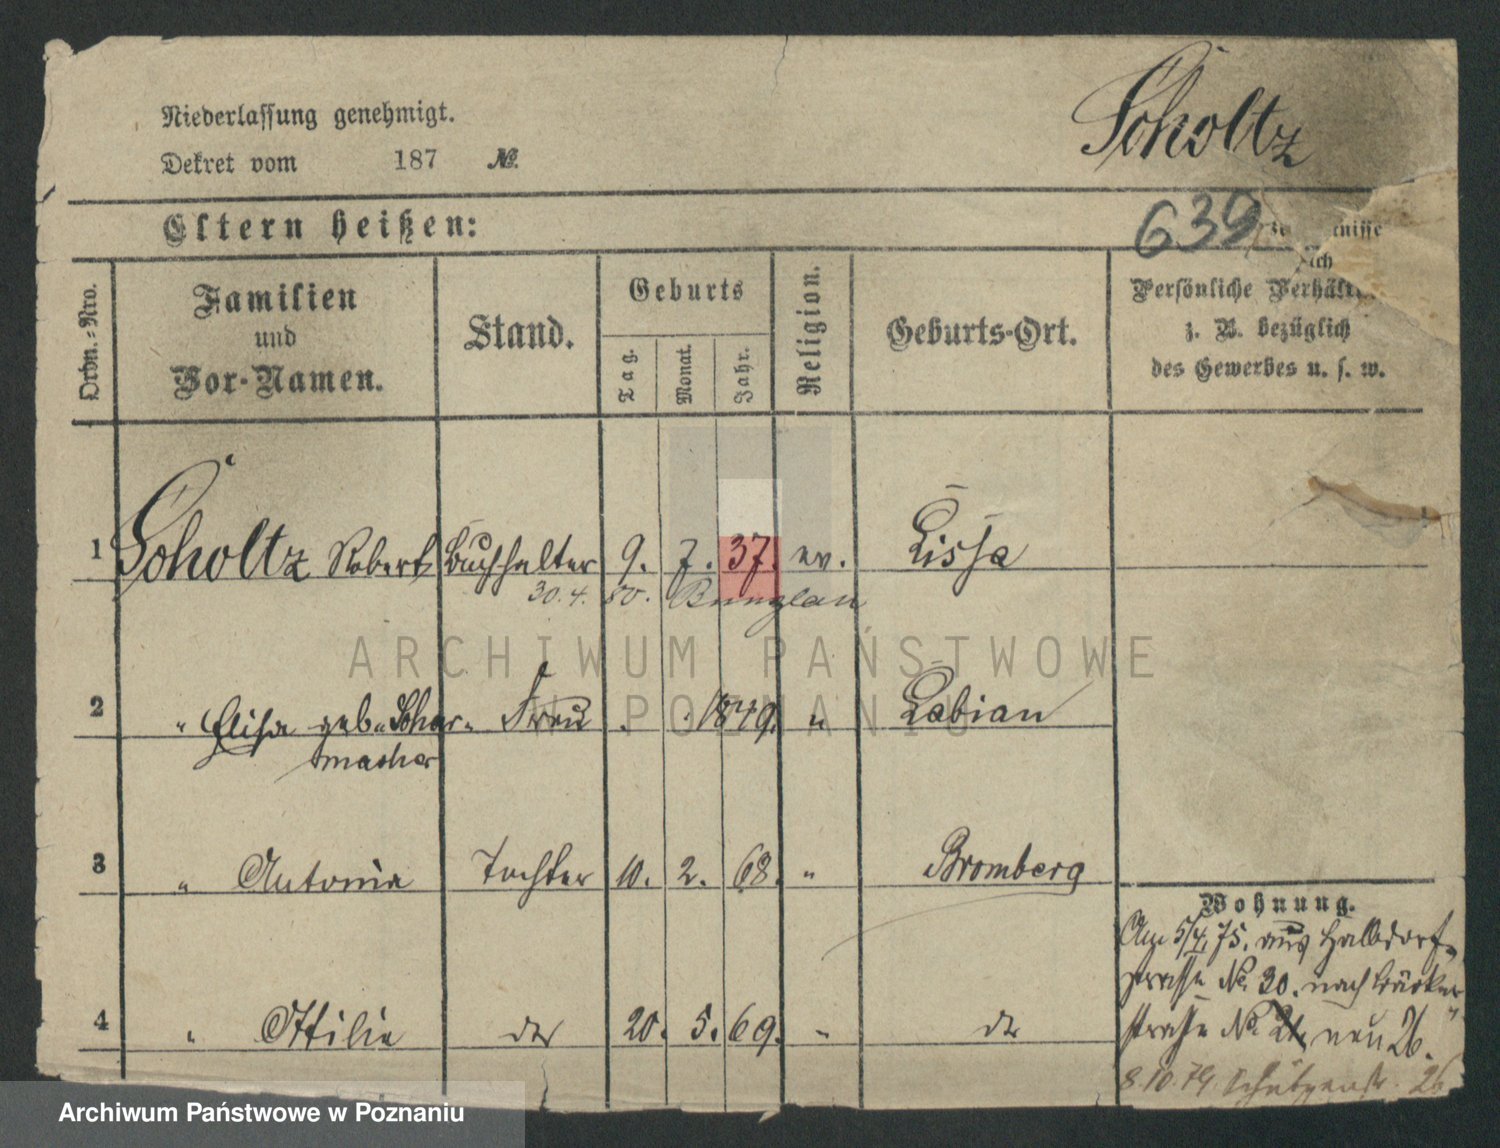 Scholtz
Niederlassung genehmigt.
Dekret vom 187 №
639
Eltern heißen:
nisse
Ordn.-Nro.
Familien
und
Vor-Namen.
Stand.
Geburts
Tag.
Monat.
Jahr.
Religion.
Geburts-Ort.
Persönliche
z. B. bezüglich
des Gewerbes u. s. w.
1 Scholtz Robert Buchhalter 9. 7. 37. ev. Lissa
30. 4. 50. Bunzlau
2 " Elisa geb. Schar- Frau . . 1849. " Labian
macher
3 " Antonia Tochter 10. 2. 68. " Bromberg
4 " Ottilie do 20. 5. 69. " do
Wohnung.
5/4. 75. aus Halbdorf-
strasse No. 30. nach Bäcker
strasse No. 21. neu 26.
8.10.79. Schützenstr. 26
ARCHIWUM PAŃSTWOWE
W POZNANIU
Archiwum Państwowe w Poznaniu